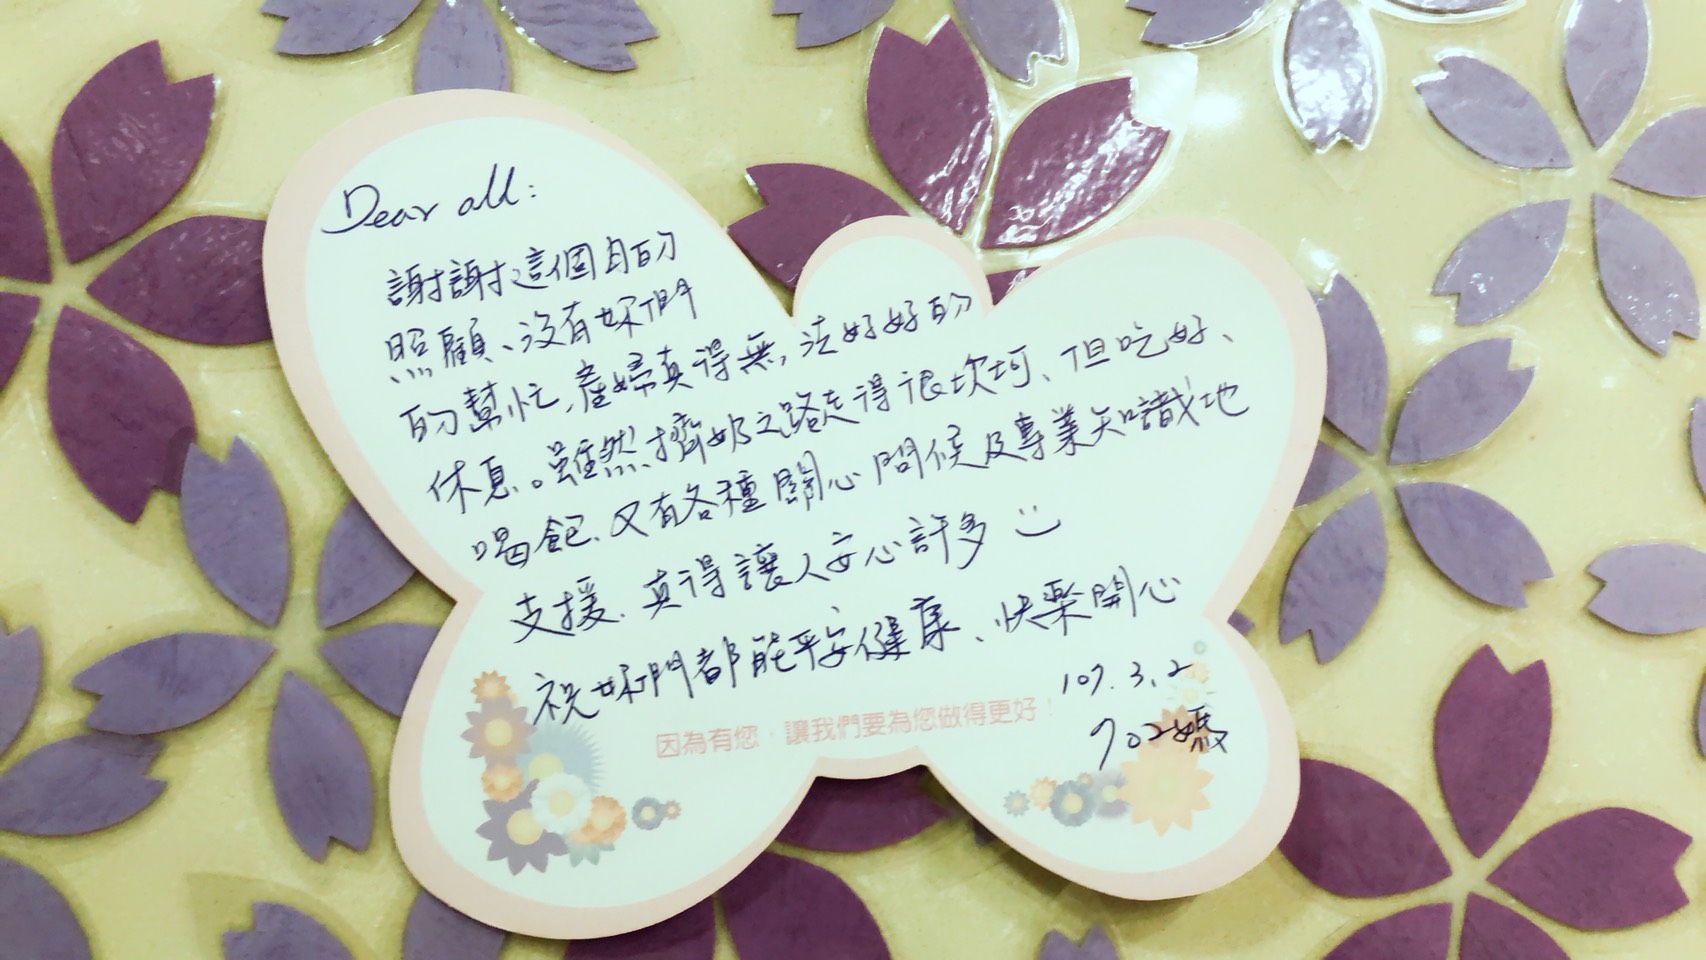 Dear all:
謝謝這個月的
照顧、沒有妳們
的幫忙,產婦真得無法好好的
休息。雖然擠奶之路走得很坎坷、但吃好、
喝飽、又有各種關心問候及專業知識地
支援、真得讓人安心許多
祝妳們都能平安健康、快樂開心
107.3.2
902媽
因為有您,讓我們要為您做得更好!